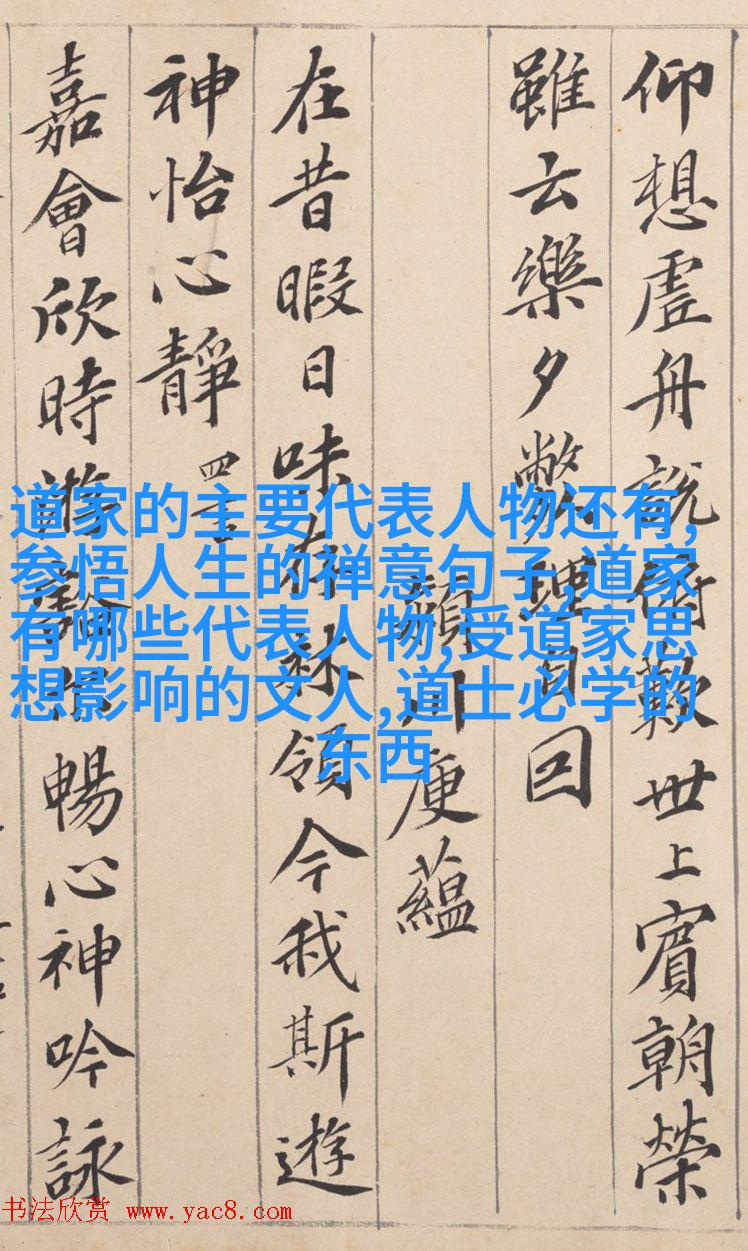 仰想虛舟說俯歎世上賓朝榮
雖云樂夕弊理自回
潁川庾蘊
在昔暇日味存林嶺今我斯遊
神怡心靜 四言
嘉會欣時遊豁暢心神吟詠
道家的主要代表人物还有,
参悟人生的禅意句子,道家
有哪些代表人物,受道家思
想影响的文人,道士必学的
东西
书法欣赏 www.yac8.com